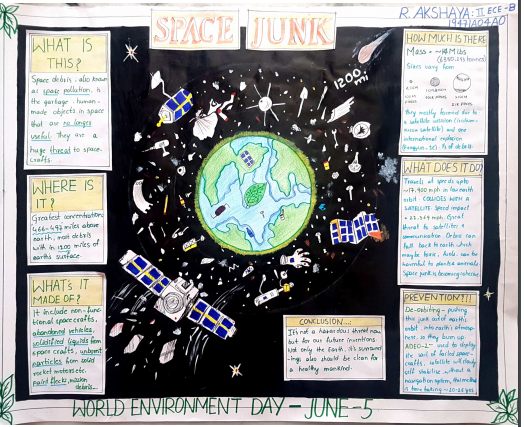 R. AKSHAYA: II ECE-B
19471A04A0
SPACE JUNK
WHAT IS
THIS?
Space debris, also known
as space pollution, is
the garbage, human-
made objects in space
that are no longer
useful. They are a
huge threat to space-
crafts.
WHERE IS
IT?
Greatest concentration:
466-492 miles above
earth, most debris
with in 1200 miles of
earths surface.
WHAT'S IT
MADE OF?
It include non-func-
tional spacecrafts,
abandoned vehicles,
solidified liquids from
space crafts, unburnt
particles from solid
rocket motors etc.
paint flecks, mission
debris..
1200
mi
HOW MUCH IS THERE
Mass = ~14 M lbs
Sizes vary from
they mostly formed due to
a satellite collision
and one
international explosion
WHAT DOES IT DO?
Travels at speeds upto
~17,900 mph in low earth
orbit. COLLIDES WITH A
SATELLITE. Speed impact
Great
threat to satellites &
communication. Debris can
fall back to earth which
may be toxic,
harmful to plants & animals
Space junk is becoming
PREVENTION!!!
De-orbiting - pushing
the junk out of earth's
orbit into earth's atmosp-
here, so they burn up
used to deploy
the sail of failed space-
crafts, satellite will slowly
without a
navigation system, this method
is time taking ~20-25 yrs.
CONCLUSION...:
It's not a hazardous threat now
but for our future inventions.
Not only the Earth, it's surround-
ings also should be clean for
a healthy mankind.
WORLD ENVIRONMENT DAY - JUNE - 5